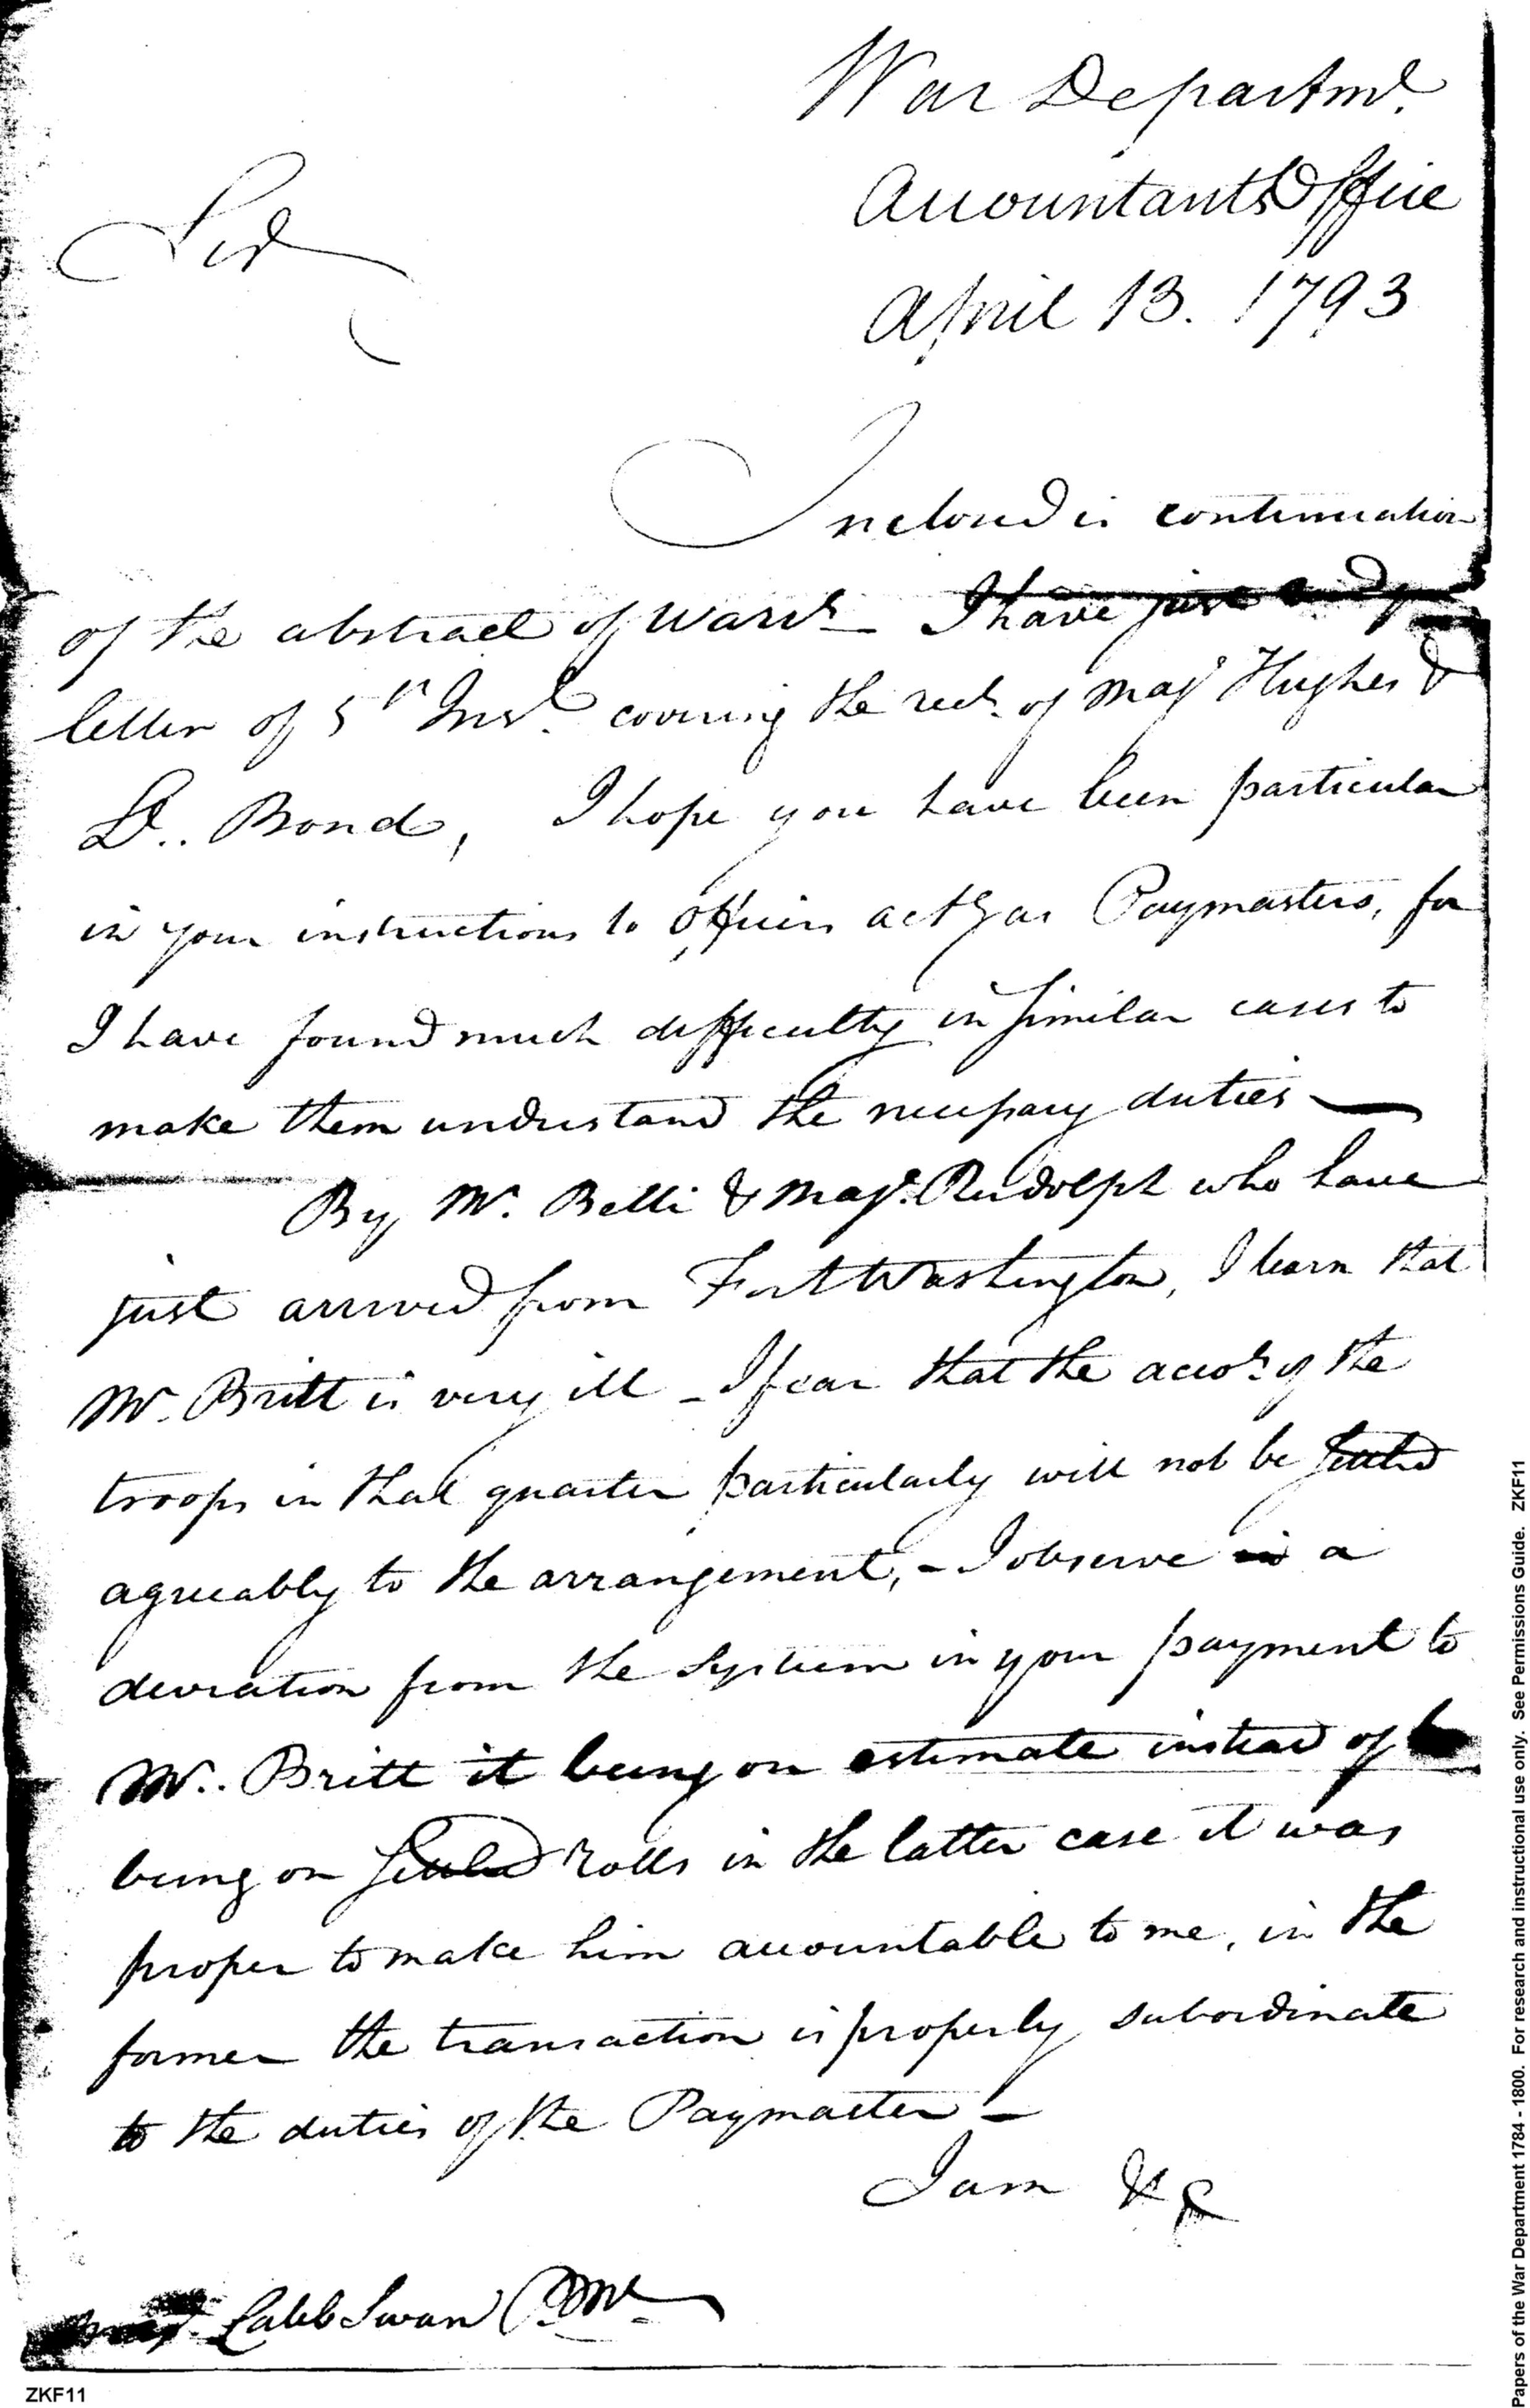 War Departmt.
Accountants Office
April 13. 1793
Sir
Inclosed is continuation
of the abstract of Warrts_ I have just
letter of 5th Inst. covering the rects. of Majr Hughes &
Dr.. Bond, I hope you have been particular
in your instructions to Officers actg as Paymasters, for
I have found much difficulty in similar cases to
make them understand the necessary duties —
By Mr. Belli & Majr. Rudolph who have
just arrived from Fort Washington, I learn that
Mr. Britt is very ill _ I fear that the accots. of the
troops in that quarter particularly will not be settled
agreeably to the arrangement, - I observe a
deviation from the System in your payment to
Mr.. Britt it being on estimate instead of
being on settled rolls in the latter case it was
proper to make him accountable to me, in the
former the transaction is properly subordinate
to the duties of the Paymaster –
I am &c
Caleb Swan P.Mr
ZKF11
Papers of the War Department 1784 - 1800. For research and instructional use only. See Permissions Guide. ZKF11